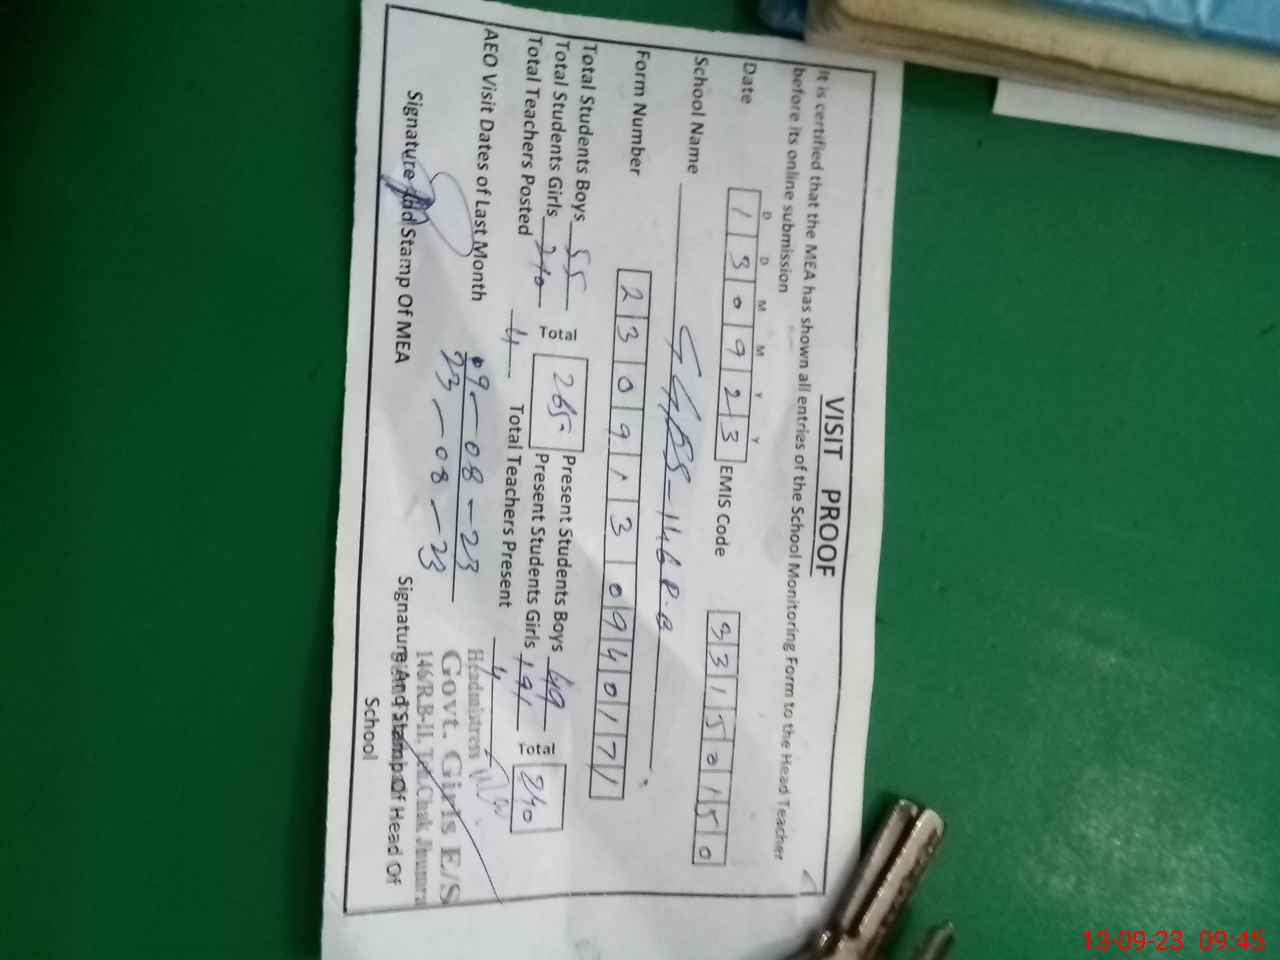 VISIT PROOF
It is certified that the MEA has shown all entries of the School Monitoring Form to the Head Teacher
before its online submission
D D M M Y Y
Date 1 3 0 9 2 3 EMIS Code 3 3 1 5 0 1 5 0
School Name GGES-146 R.B
Form Number 2 3 0 9 1 3 0 9 4 0 1 7 1
Total Students Boys 55 Present Students Boys 49
Total 265 Total 240
Total Students Girls 210 Present Students Girls 191
Total Teachers Posted 4 Total Teachers Present 4
AEO Visit Dates of Last Month 09-08-23
23-08-23
Headmistress
Govt. Girls E/S
146/R.B-II, Teh.Chak Jhumra
Signature And Stamp Of MEA Signature And Stamp Of Head Of
School
13-09-23 09:45